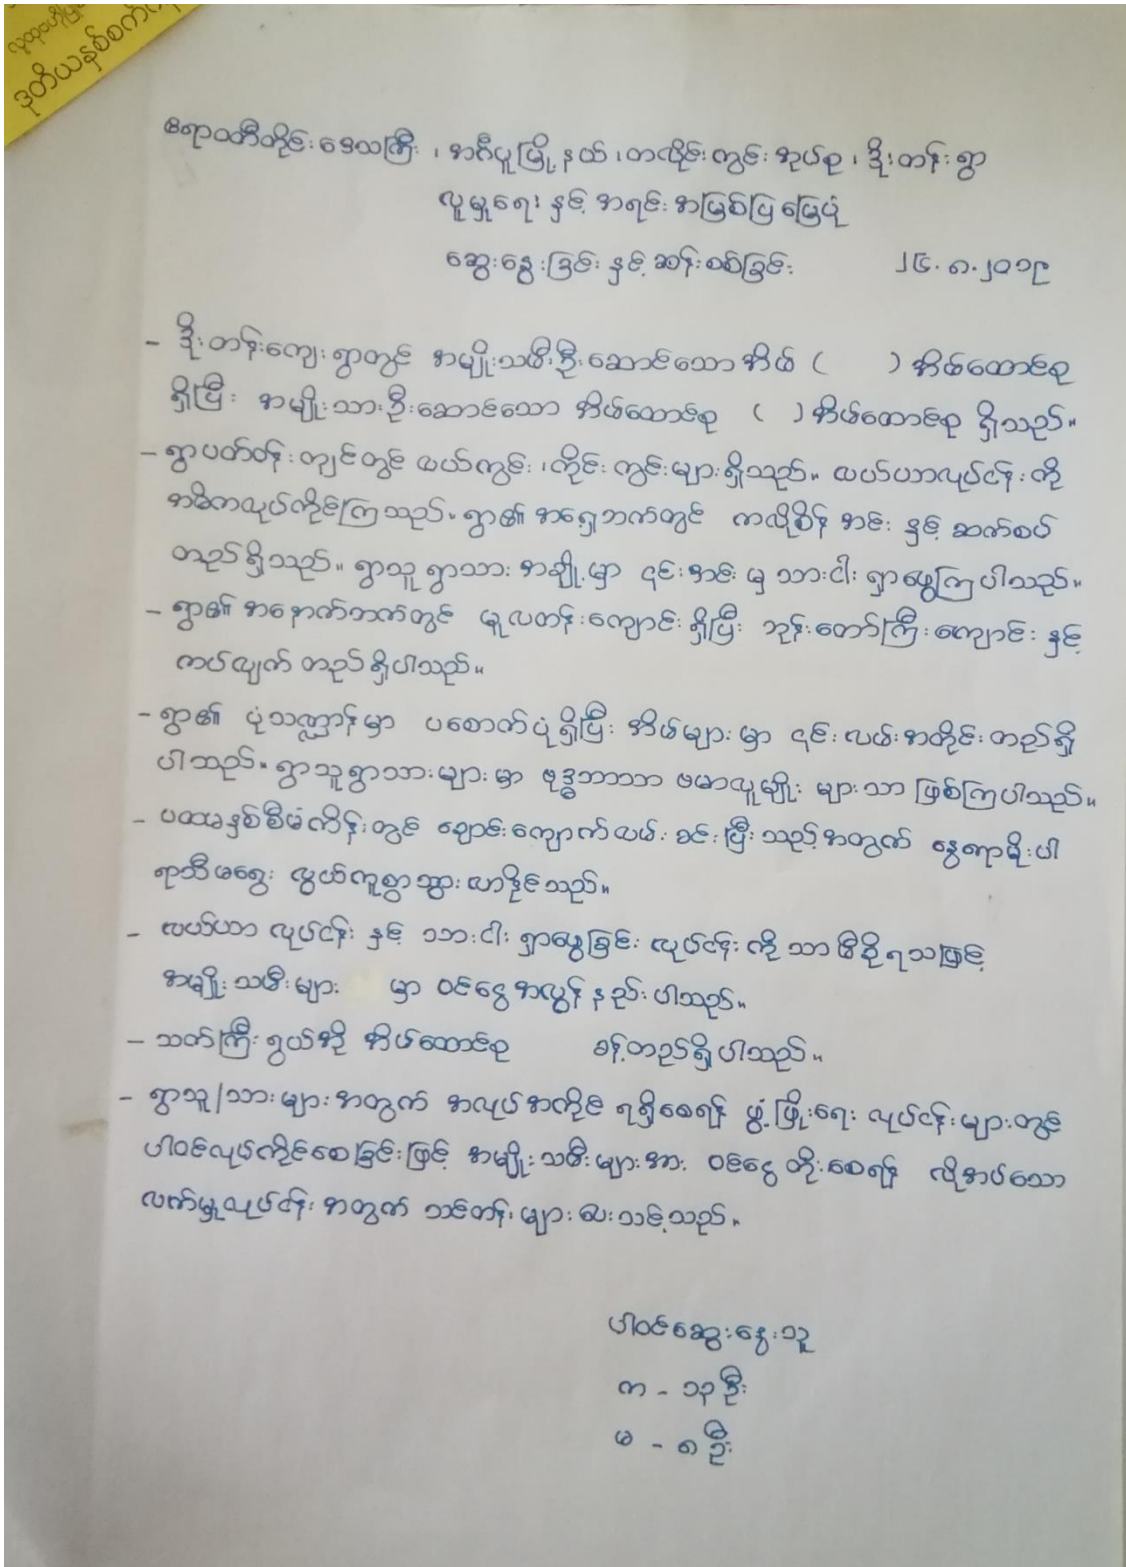 ဒုတိယနှစ်စက်
ဧရာဝတီတိုင်းဒေသကြီး ၊ အင်္ဂပူမြို့နယ် ၊ တလိုင်းကွင်း အုပ်စု ၊ ဒိုးတန်းရွာ
လူမှုရေး နှင့် အရင်းအမြစ်ပြမြေပုံ
ဆွေးနွေးခြင်း နှင့် ဆန်းစစ်ခြင်း ၂၄.၈.၂၀၁၉
- ဒိုးတန်းကျေးရွာတွင် အမျိုးသမီးဦးဆောင်သောအိမ် ( ) အိမ်ထောင်စု
ရှိပြီး အမျိုးသားဦးဆောင်သော အိမ်ထောင်စု ( ) အိမ်ထောင်စု ရှိသည်။
- ရွာပတ်ဝန်းကျင်တွင် လယ်ကွင်း၊ ကိုင်းကွင်းများရှိသည်။ လယ်ယာလုပ်ငန်းကို
အဓိကလုပ်ကိုင်ကြသည်။ ရွာ၏ အရှေ့ဘက်တွင် ကလိုစိန် အင်း နှင့် ဆက်စပ်
တည်ရှိသည်။ ရွာသူ ရွာသား အချို့မှာ ၎င်းအင်း မှ သားငါး ရှာဖွေကြပါသည်။
- ရွာ၏ အနောက်ဘက်တွင် မူလတန်းကျောင်း ရှိပြီး ဘုန်းတော်ကြီးကျောင်း နှင့်
ကပ်လျက် တည်ရှိပါသည်။
- ရွာ၏ ပုံသဏ္ဌာန်မှာ ပစောက်ပုံရှိပြီး အိမ်များမှာ ၎င်းလမ်းအတိုင်းတည်ရှိ
ပါသည်။ ရွာသူရွာသားများမှာ ဗုဒ္ဓဘာသာ ဗမာလူမျိုး များသာ ဖြစ်ကြပါသည်။
- ပထမနှစ်စီမံကိန်းတွင် ချောင်းကျောက်လမ်းခင်းပြီးသည့်အတွက် နွေရာမိုးပါ
ရာသီမရွေး လွယ်ကူစွာသွားလာနိုင်သည်။
- လယ်ယာ လုပ်ငန်း နှင့် သားငါး ရှာဖွေခြင်း လုပ်ငန်းကိုသာ မှီခိုရသဖြင့်
အမျိုးသမီးများ မှာ ဝင်ငွေအလွန်နည်းပါသည်။
- သက်ကြီးရွယ်အို အိမ်ထောင်စု ခန့်တည်ရှိပါသည်။
- ရွာသူ/သားများအတွက် အလုပ်အကိုင် ရရှိစေရန် ဖွံ့ဖြိုးရေး လုပ်ငန်းများတွင်
ပါဝင်လုပ်ကိုင်စေခြင်းဖြင့် အမျိုးသမီးများအား ဝင်ငွေတိုးစေရန် လိုအပ်သော
လက်မှုလုပ်ငန်းအတွက် သင်တန်းများပေးသင့်သည်။
ပါဝင်ဆွေးနွေးသူ
က - ၁၃ ဦး
မ - ၈ ဦး